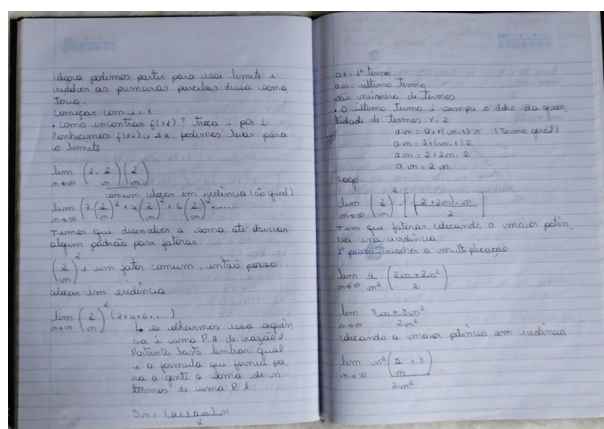 Agora podemos partir para esse limite e
resolver as primeiras parcelas dessa soma
Começar com i = 1
• Como encontrar f(xi)? Troca i por 1
Conhecemos f(xi) e Δx, podemos levar para
o limite
lim n→∞ (2. 2/n) (2/n)
comum colocar em evidência (ao quad)
lim n→∞ (2.(2/n)² + 4(2/n)² + 6(2/n)² + ......
Temos que desenvolver a soma até observar
algum padrão para fatorar.
(2/n)² é um fator comum, então posso
colocar em evidência
lim n→∞ (2/n)² (2+4+6+...)
↳ se olharmos essa sequên
cia é uma P.A. de razão 2
Portanto basta lembrar qual
é a formula que fornece pa
ra a gente a soma de n
termos de uma P.A
Sn = (a1+an).n/2
a1 = 1º termo
an = ultimo termo
n = número de termos
• O último termo é sempre o dobro da quan
tidade de termos r = 2
an = a1+(n-1).r (Termo geral)
an = 2+(n-1).2
an = 2+2n-2
an = 2n
Logo:
lim n→∞ (2/n)² . [(2+2n).n/2]
Tem que fatorar colocando a maior potên
cia em evidência
1º passo: resolver a multiplicação
lim n→∞ 4/n² (2n+2n²/2)
lim n→∞ 8n+8n²/2n²
colocando a maior potência em evidência
lim n→∞ n²(8/n + 8)/2n²